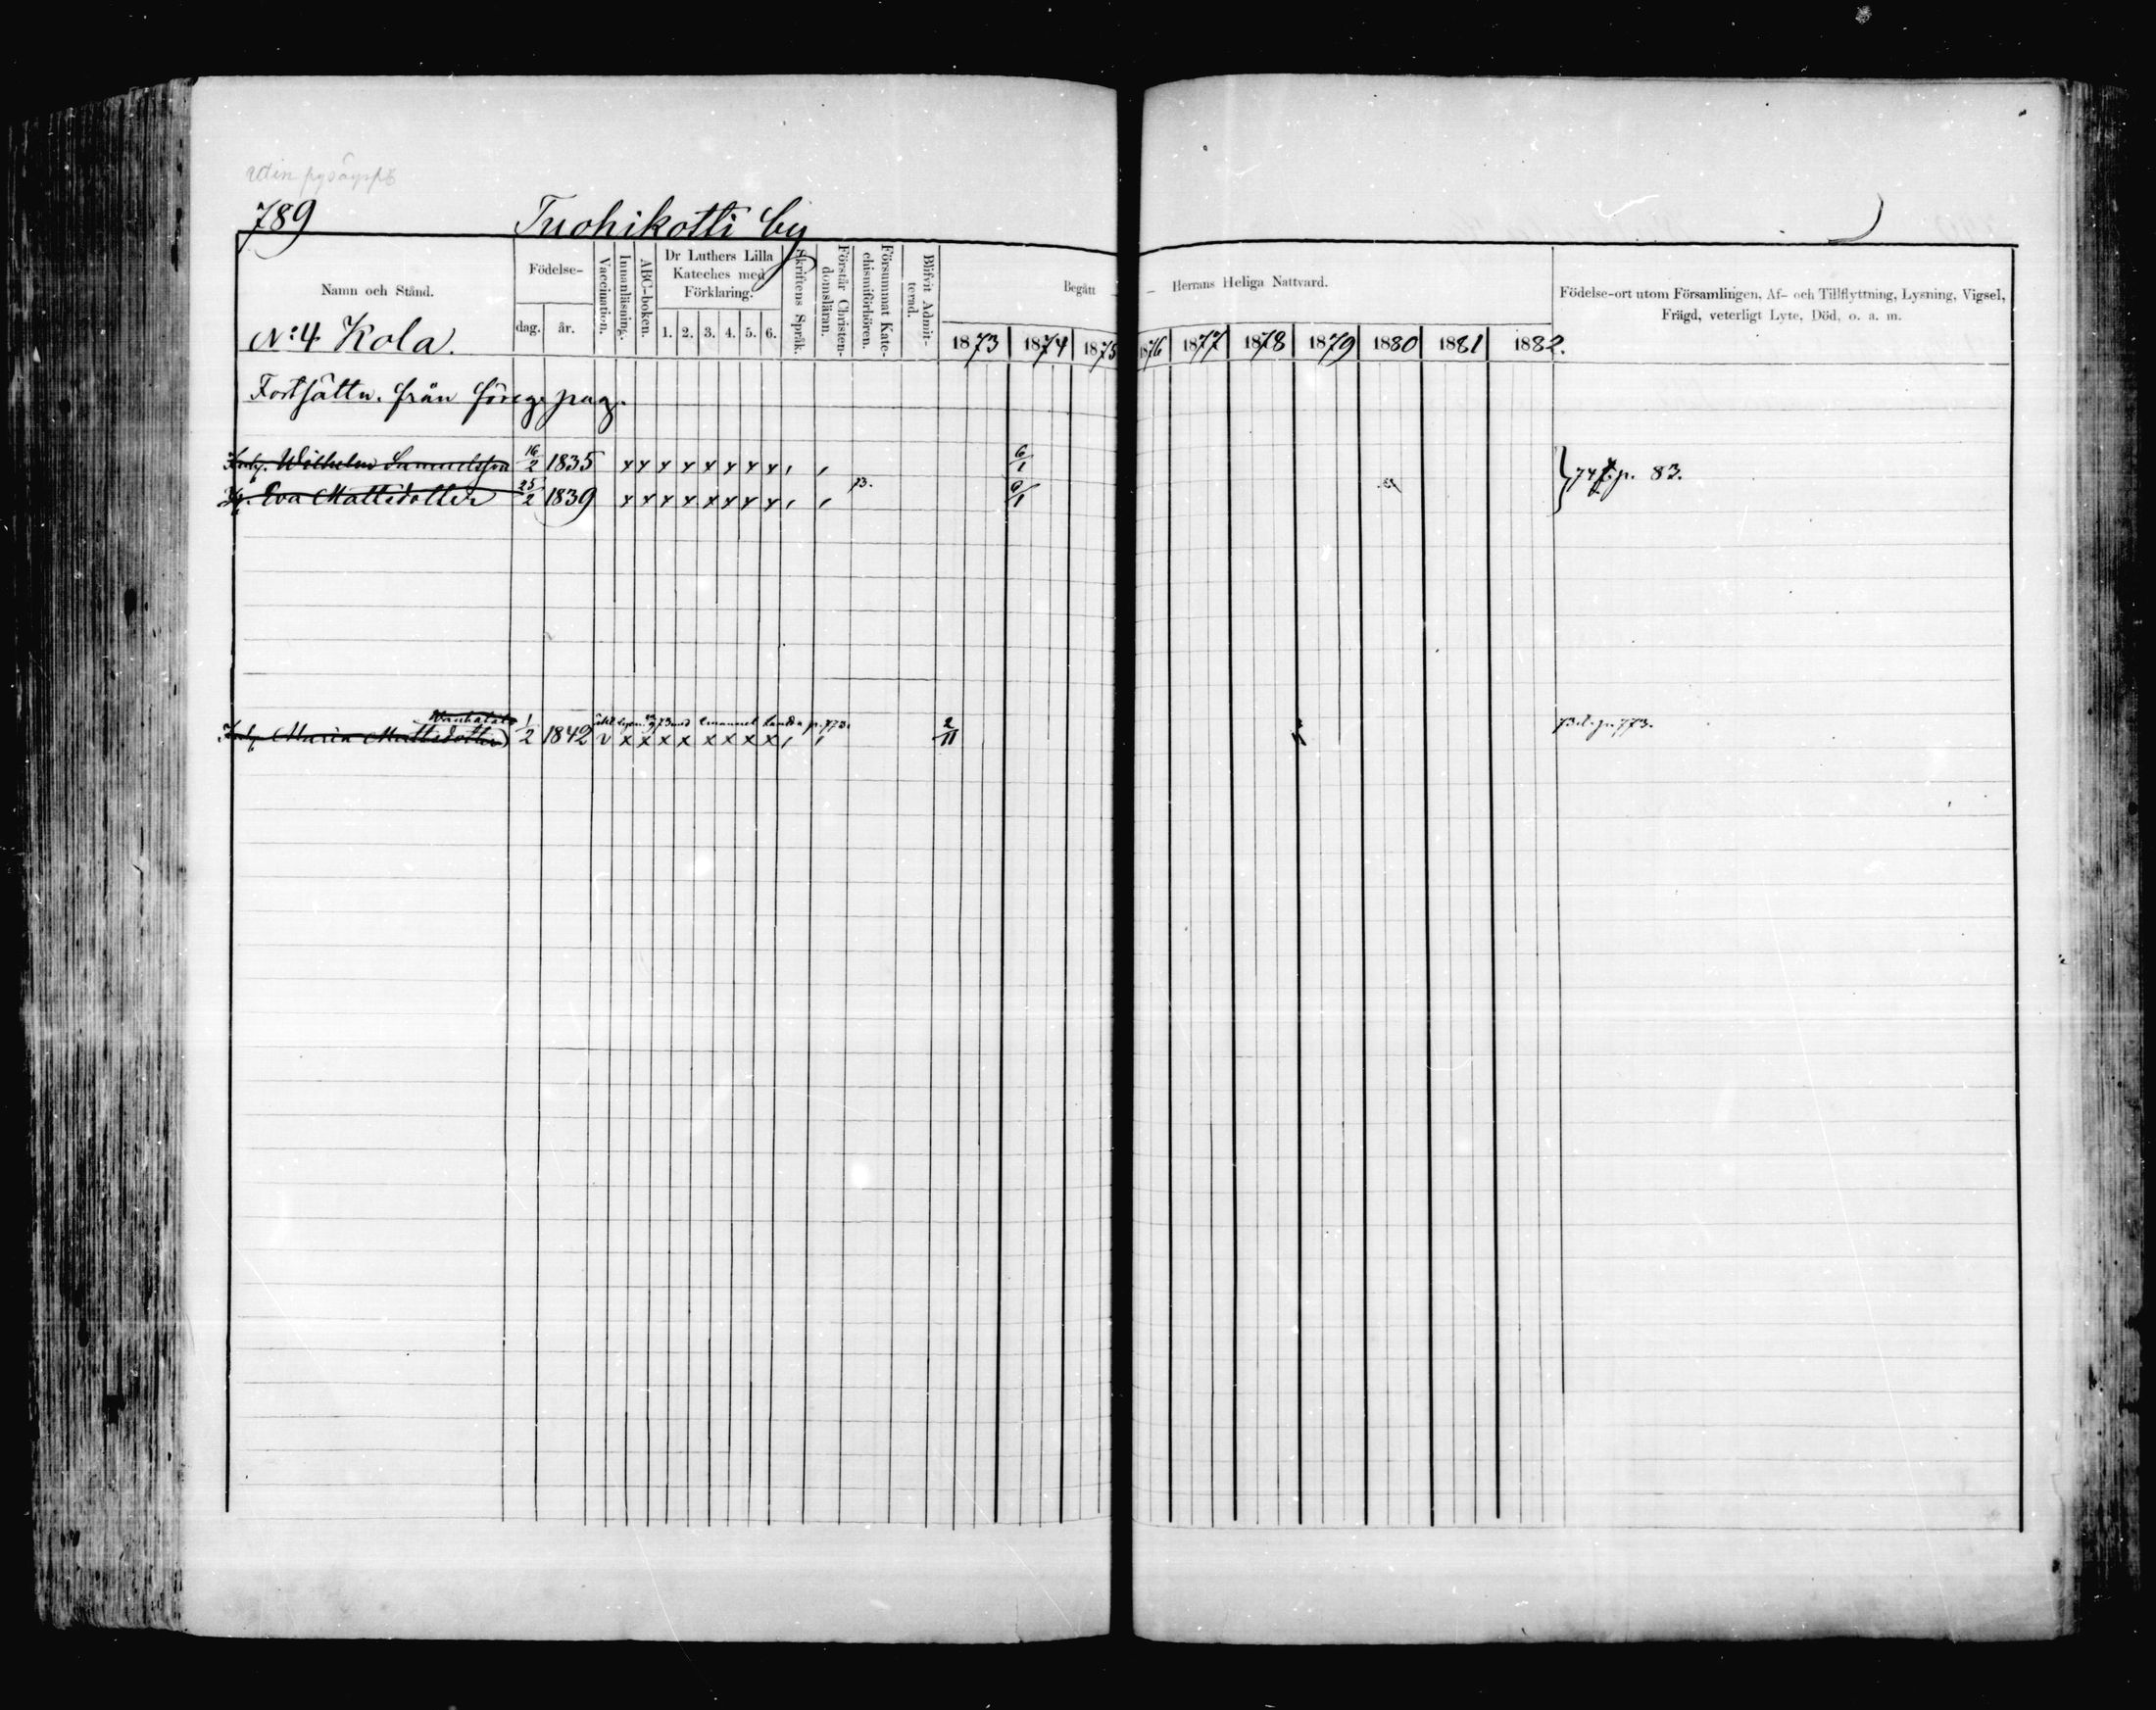 789 Tuohikotti by
Namn och Stånd. Födelse- dag. år. Vaccination. Innanläsning. ABC-boken. Dr Luthers Lilla Kateches med Förklaring. 1. 2. 3. 4. 5. 6. Skriftens Språk. Förstår Christendomsläran. Försummat Katechismiförhören. Blifvit Admitterad. Begått — Herrans Heliga Nattvard. Födelse-ort utom Församlingen, Af- och Tillflyttning, Lysning, Vigsel, Frägd, veterligt Lyte, Död, o. a. m.
N:4 Kola. 1873 1874 1875 1876 1877 1878 1879 1880 1881 1882.
Fortsättn. från föreg. pag.
Wilhelm Samuelsson 16/2 1835 x x x x x x x x , , 6/1
Eva Mattsdotter 25/2 1839 x x x x x x x x , , 73. 6/1 p. 83.
Maria Mattsdotter 1/2 1842 v x x x x x x x x , , 2/11 p. 773.